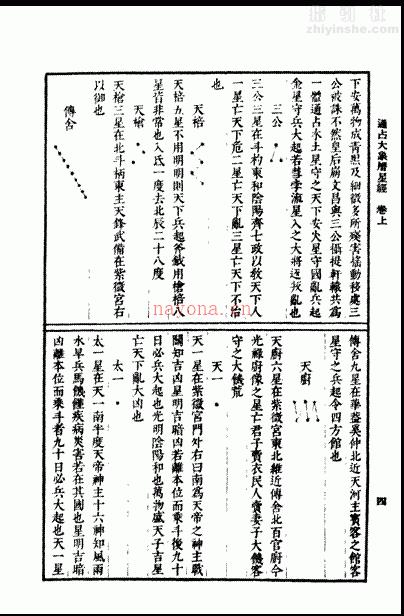 zhiyinshe.com
通占大象曆星經 卷上
四
下安萬物成青黑及細微多所殘害搖動移處三
公被誅不然皇后崩文昌與三公攝提軒轅共為
一體通占木土星守之天下安火星守國亂兵起
金星守兵大起若彗孛流星入之大將返叛亂也
三公
三公三星在斗杓東和陰陽齊七政以敎天下人
一星亡天下危二星亡天下亂三星亡天下不治
也
天棓
天棓五星不用明明則天下兵起斧鉞用槍棓八
星皆非常也入氐一度去北辰二十八度
天槍
天槍三星在北斗柄東主天鋒武備在紫微宮右
以禦也
傳舍
傳舍九星在華蓋奚仲北近天河主賓客之館客
星守之兵起令四方館也
天廚
天廚六星在紫微宮東北維近傳舍北百官廚今
光祿廚像之星亡君子賣衣民人賣妻子大饑客
守之大饑荒
天一
天一星在紫微宮門外右曰南為天帝之神主戰
鬪知吉凶星明吉暗凶若離本位而乘斗後九十
日必兵大起也光明陰陽和也萬物盛天子吉星
亡天下亂大凶也
太一
太一星在天一南半度天帝神主十六神知風雨
水旱兵馬饑饉疾病災害若在其國也星明吉暗
凶離本位而乘斗者九十日必兵大起也天一星
nayona.cn